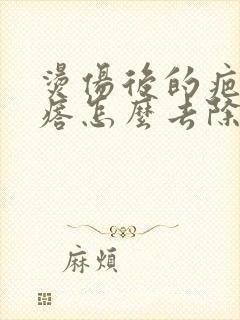 燙傷後的疤
痞怎麼去除
麻煩